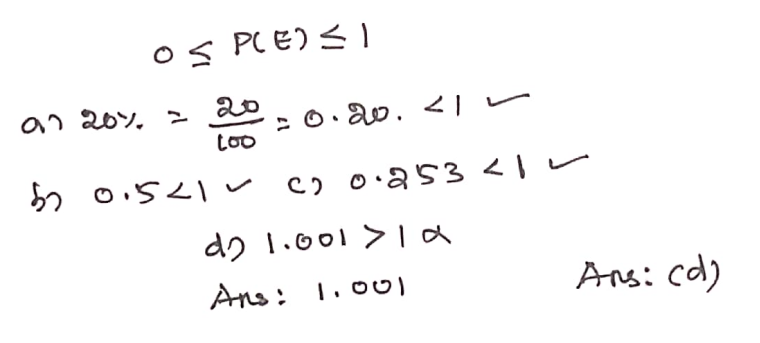 0 ≤ P(E) ≤ 1
a) 20% = 20/100 = 0.20. <1 ✓
b) 0.5<1 ✓ c) 0.253 <1 ✓
d) 1.001 >1 x
Ans: 1.001 Ans: (d)